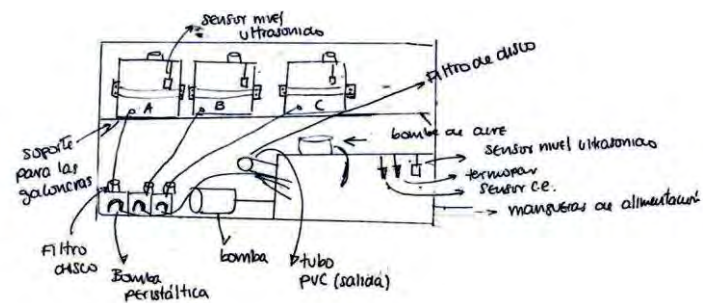 sensor nivel
ultrasonido
Filtro de disco
A
B
C
soporte
para las
bomba de aire
sensor nivel ultrasonido
termopar
sensor c.e.
mangueras de alimentación
Filtro
disco
Bomba
peristáltica
bomba
tubo
PVC (salida)